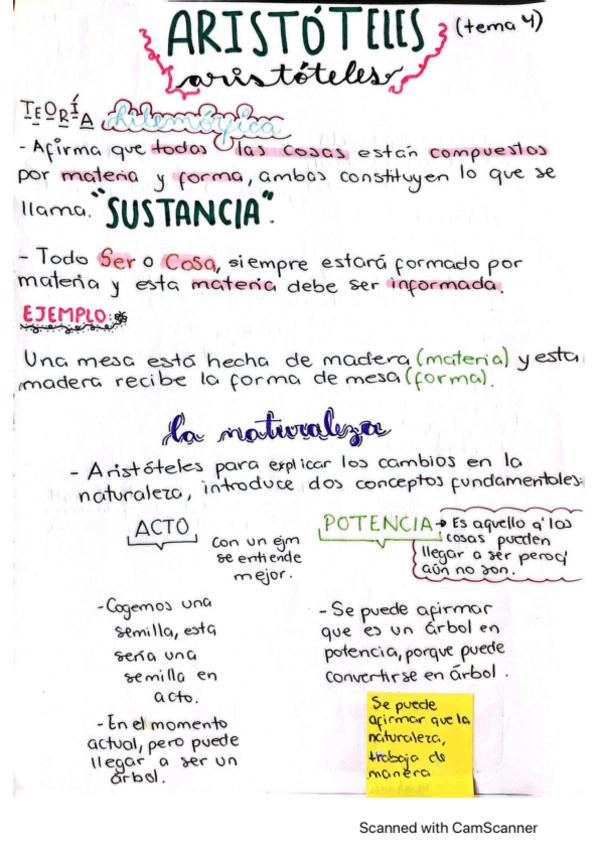 ARISTÓTELES (tema 4)
aristóteles
TEORÍA hilemórfica
- Afirma que todas las cosas están compuestas
por materia y forma, ambas constituyen lo que se
llama. "SUSTANCIA".
- Todo Ser o Cosa, siempre estará formado por
materia y esta materia debe ser informada.
EJEMPLO:
Una mesa está hecha de madera (materia) y esta
madera recibe la forma de mesa (forma).
la naturaleza
- Aristóteles para explicar los cambios en la
naturaleza, introduce dos conceptos fundamentales:
ACTO
con un ejm
se entiende
mejor.
POTENCIA → Es aquello q' las
cosas pueden
llegar a ser pero q'
aún no son.
- Cogemos una
semilla, esta
sería una
semilla en
acto.
- En el momento
actual, pero puede
llegar a ser un
árbol.
- Se puede afirmar
que es un árbol en
potencia, porque puede
convertirse en árbol.
Se puede
afirmar que la
naturaleza,
trabaja de
manera
Scanned with CamScanner